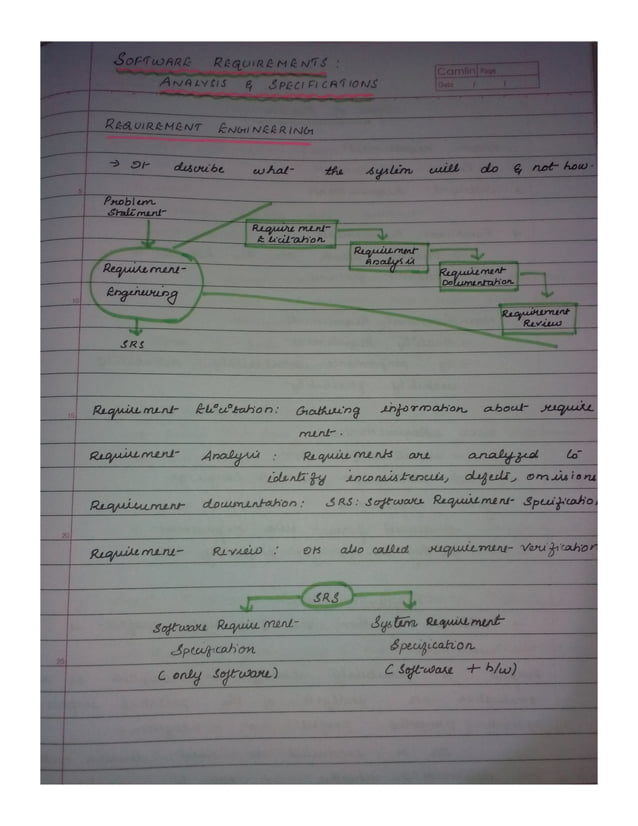 SOFTWARE REQUIREMENTS :
ANALYSIS & SPECIFICATIONS
Camlin Page
Date / /
REQUIREMENT ENGINEERING
→ It describe what the system will do & not how.
5
Problem
Statement
Requirement
Elicitation
Requirement
Analysis
Requirement
Engineering
Requirement
Documentation
10
Requirement
Review
SRS
15
Requirement Elicitation: Gathering information about require
ment.
Requirement Analysis : Requirements are analyzed to
identify inconsistencies, defects, omissions
Requirement documentation: SRS: Software Requirement Specification
20
Requirement Review : It also called requirement verification
SRS
Software Requirement
Specification
(only software)
System Requirement
Specification
(Software + h/w)
25